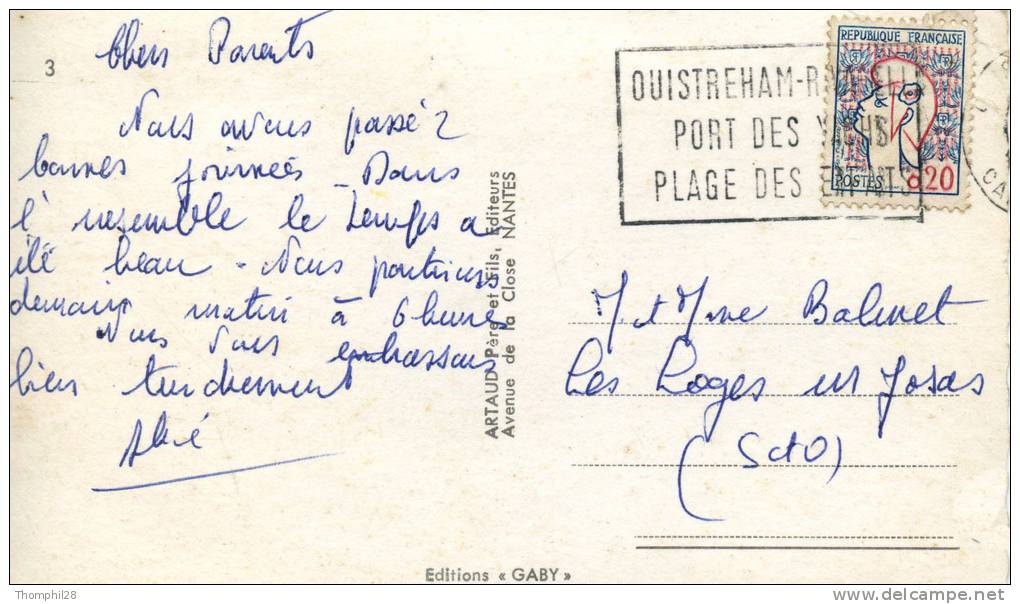 3
Chers Parents
Nous avons passé 2
bonnes journées - Dans
l'ensemble le temps a
été beau - Nous partirons
demain matin à 6 heures
Nous Vous embrassons
bien tendrement
ARTAUD Père et Fils, Editeurs
Avenue de la Close NANTES
Editions « GABY »
OUISTREHAM-R
PORT DES
PLAGE DES
REPUBLIQUE FRANÇAISE
POSTES 0,20
M. et Mme Balmet
Les Loges en Josas
(S et O)
Thomphi28
delcampe.net